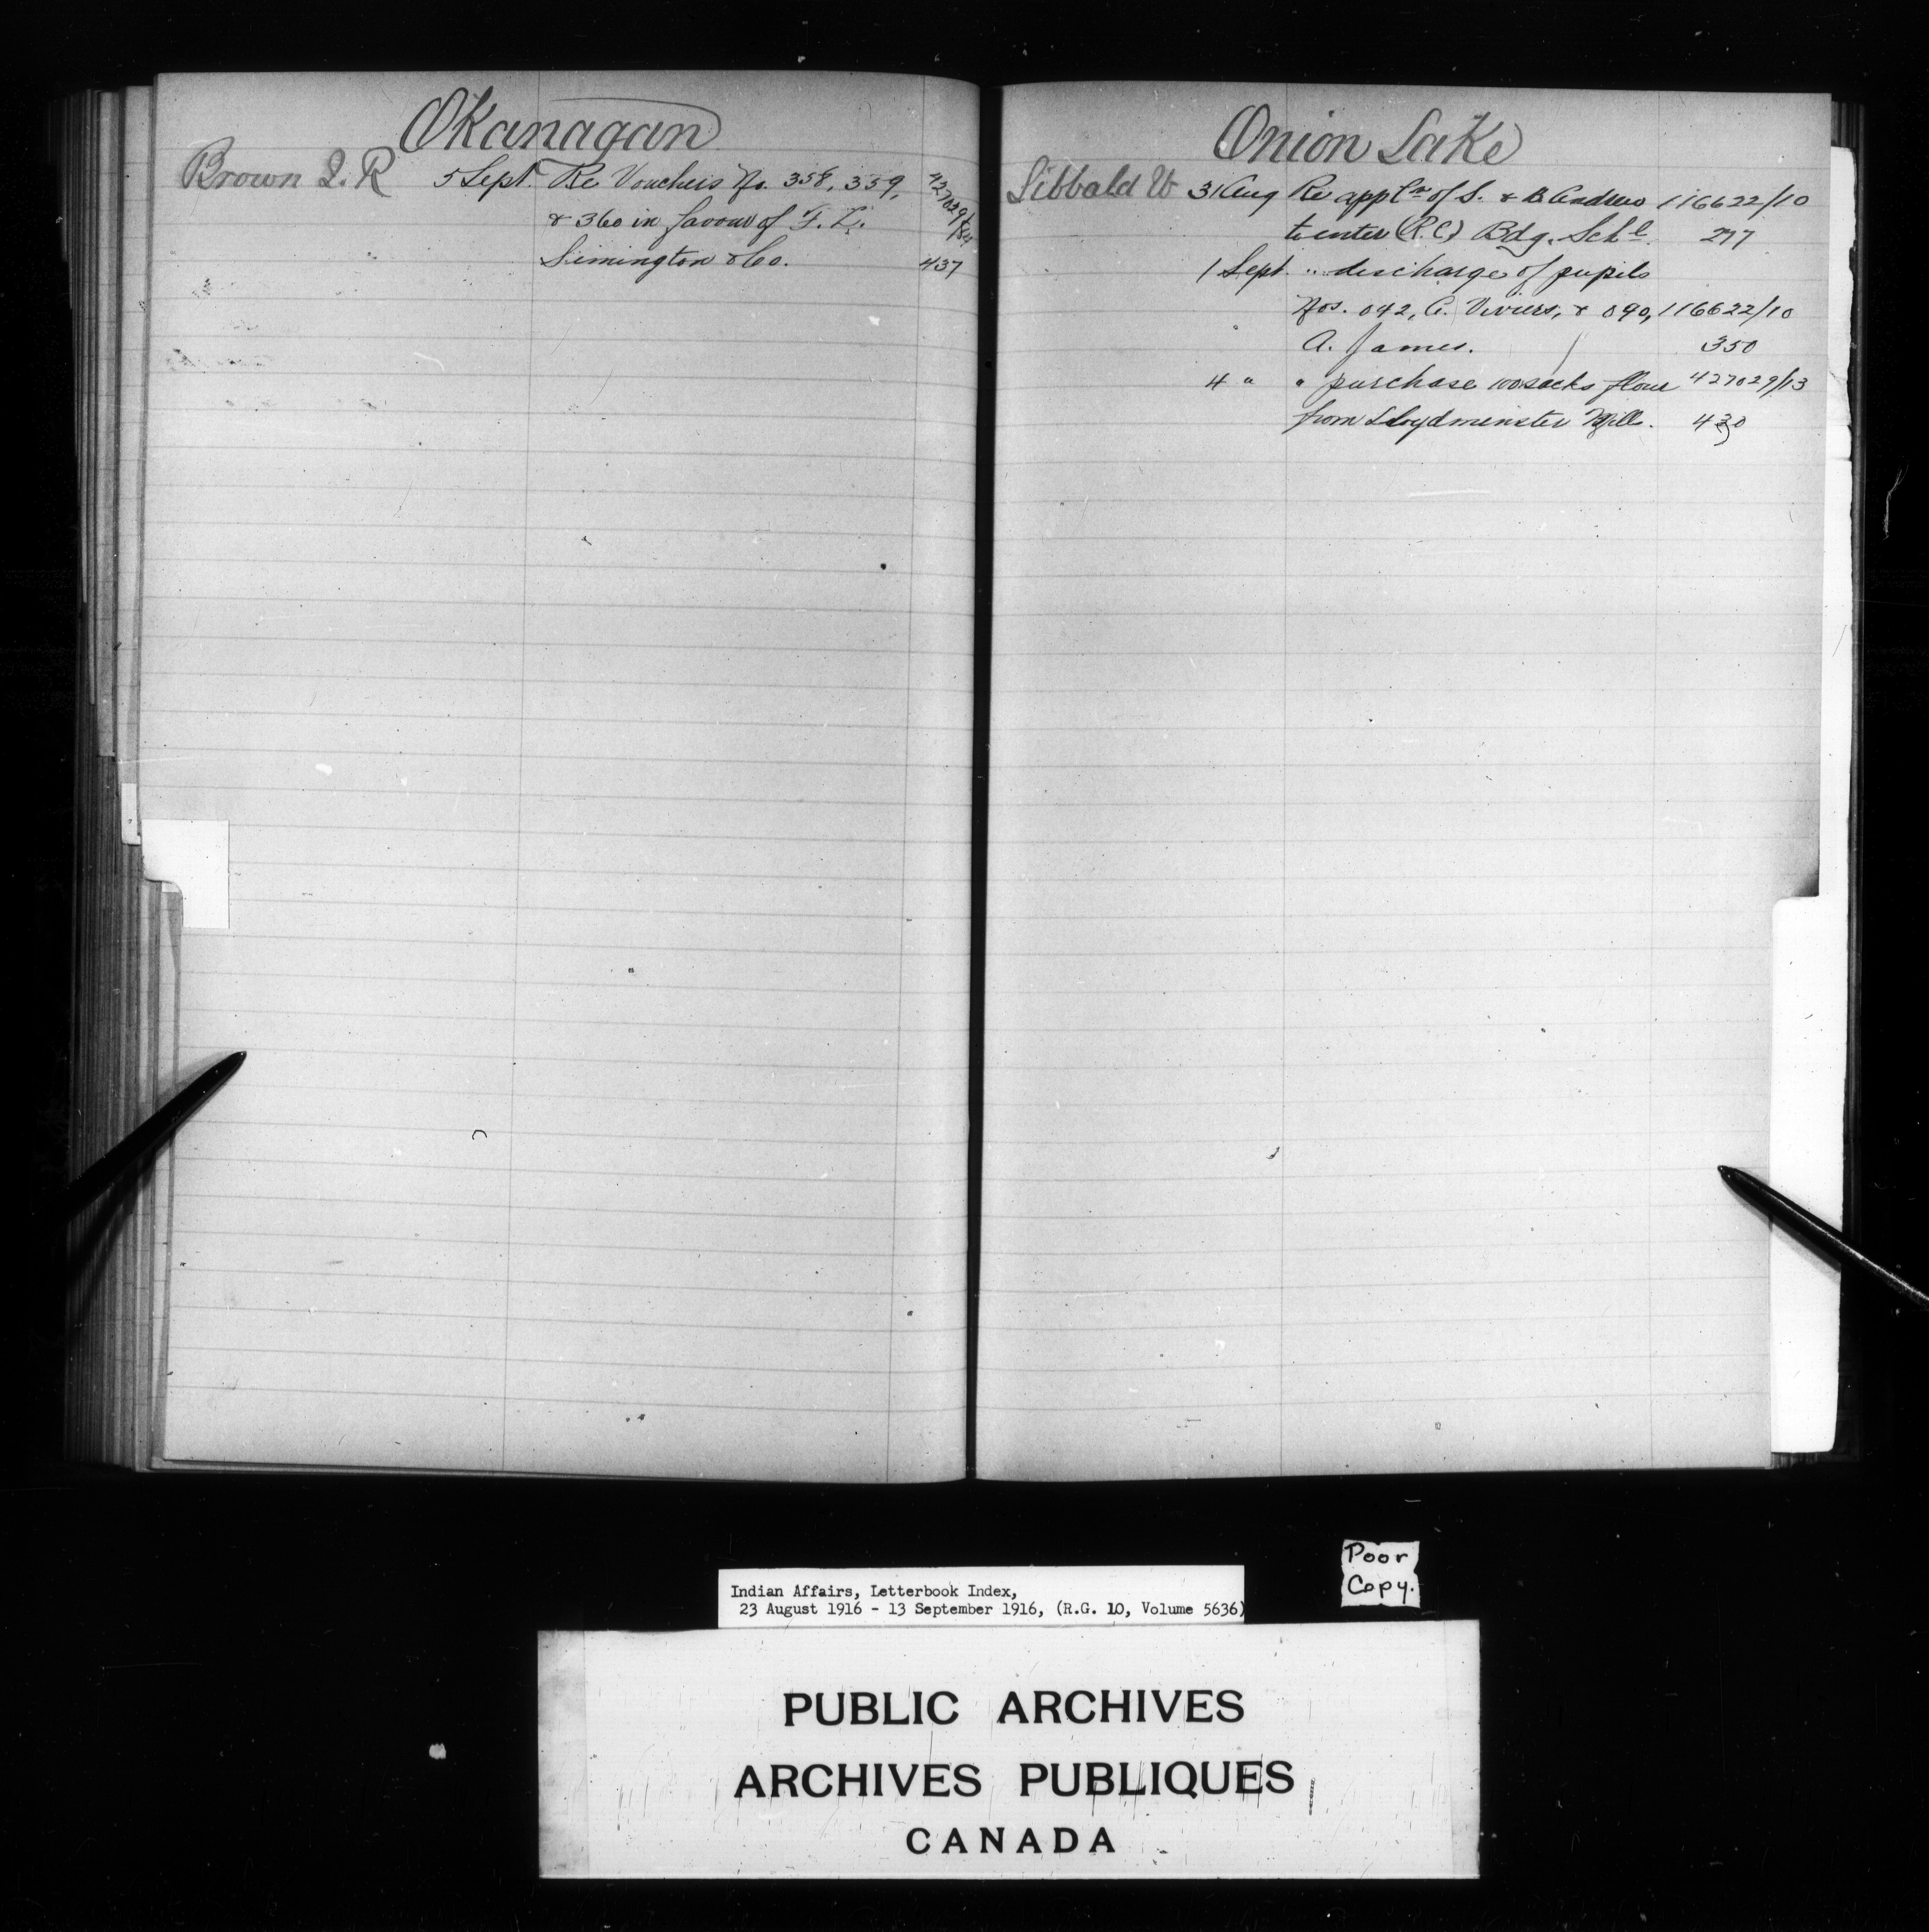 Okanagan
Brown J. R 5 Sept. Re Vouchers No. 358, 359,
& 360 in favour of F. L.
Simington & Co. 437
Onion Lake
Sibbald W 31 Aug Re appl<sup>n</sup> of S. & B Andrews 116622/10
to enter (R.C) Bdg. Sch<sup>l</sup>. 277
1 Sept. " discharge of pupils
Nos. 042, C. Viviers, & 090, 116622/10
A. James. 350
4 " " purchase 100 sacks flour 427029/13
from Lloydminster Mill. 430
Poor
Copy.
Indian Affairs, Letterbook Index,
23 August 1916 - 13 September 1916, (R.G. 10, Volume 5636)
PUBLIC ARCHIVES
ARCHIVES PUBLIQUES
CANADA